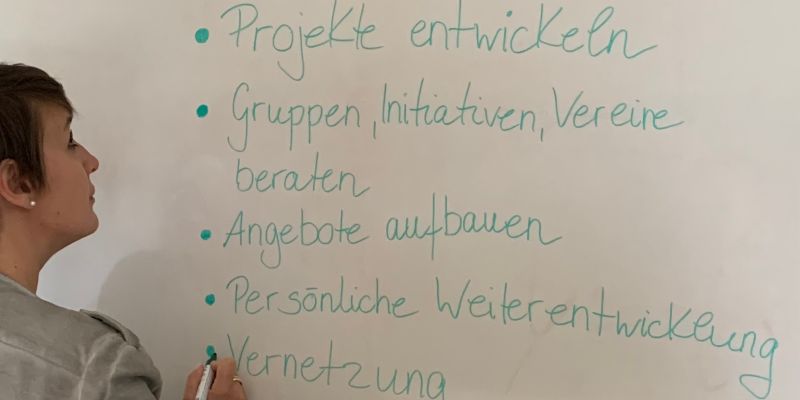 • Projekte entwickeln
• Gruppen, Initiativen, Vereine
beraten
• Angebote aufbauen
• Persönliche Weiterentwicklung
• Vernetzung